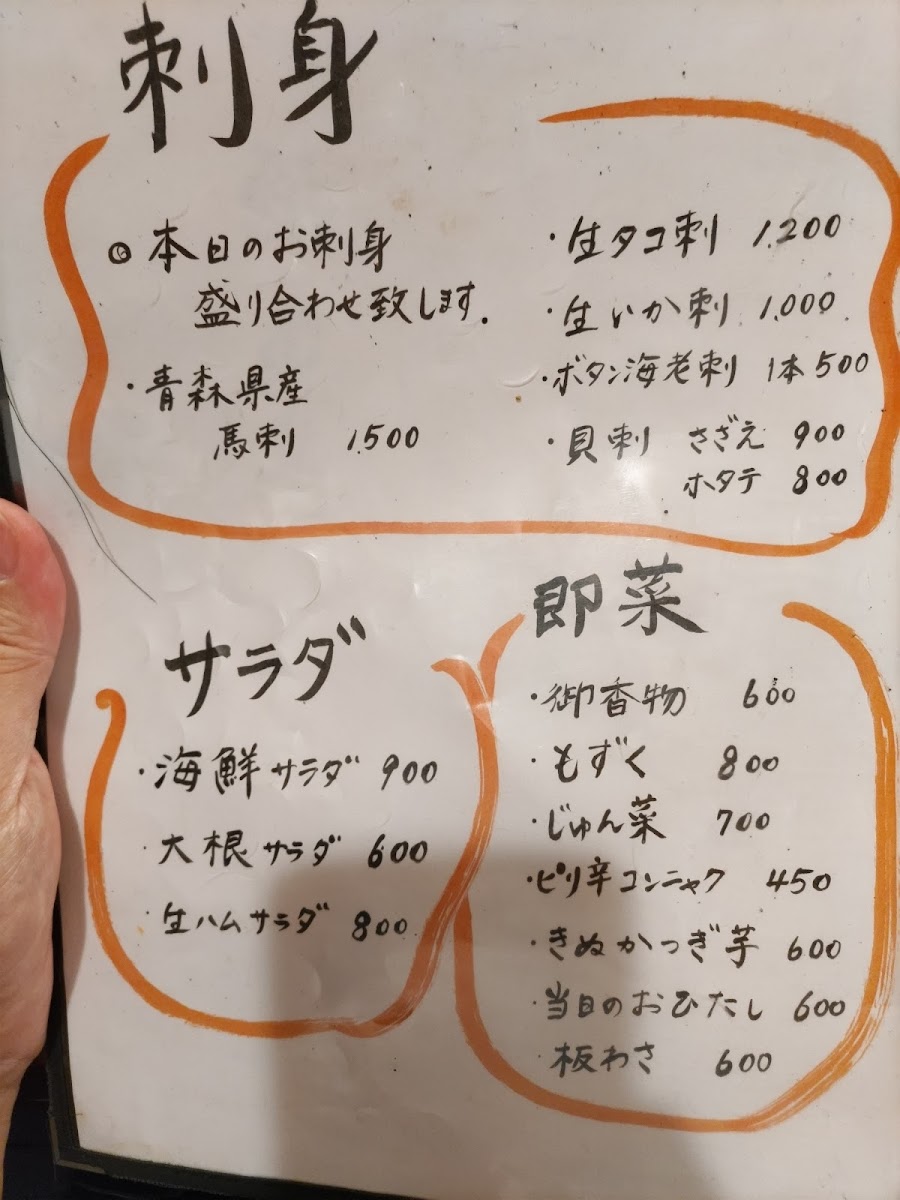 刺身
◎本日のお刺身
盛り合わせ致します.
・青森県産
馬刺 1,500
・生タコ刺 1,200
・生いか刺 1,000
・ボタン海老刺 1本500
・貝刺 さざえ 900
ホタテ 800
サラダ
・海鮮サラダ 900
・大根サラダ 600
・生ハムサラダ 800
即菜
・御香物 600
・もずく 800
・じゅん菜 700
・ピリ辛コンニャク 450
・きぬかつぎ芋 600
・当日のおひたし 600
・板わさ 600